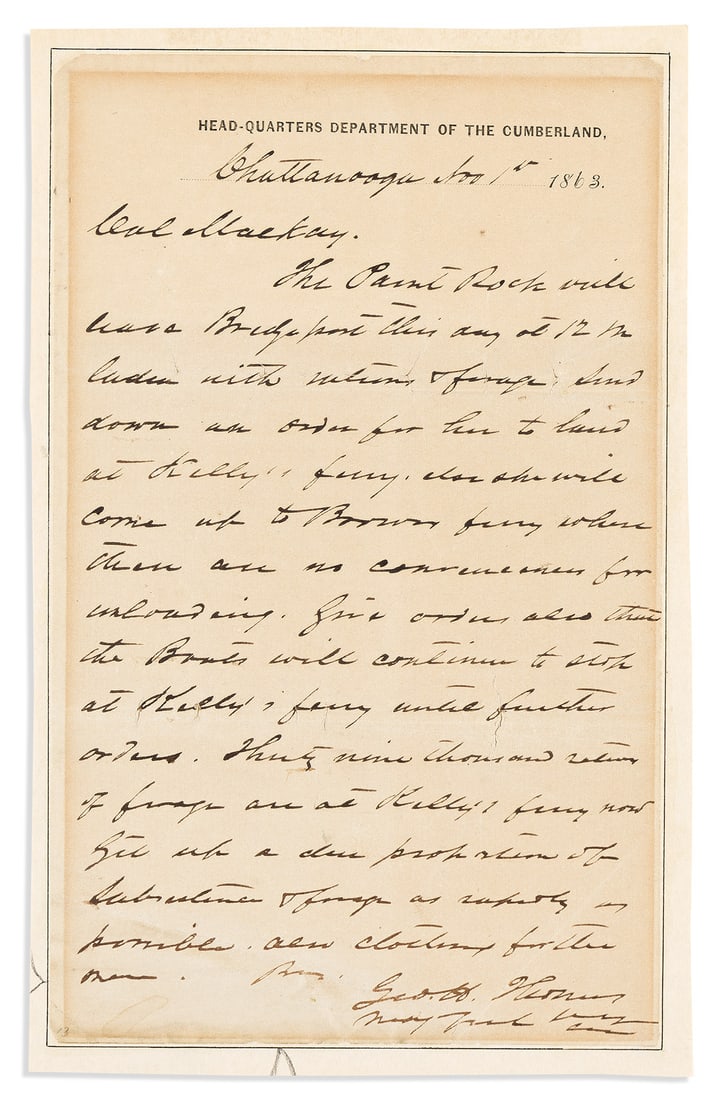 HEAD-QUARTERS DEPARTMENT OF THE CUMBERLAND,
Chattanooga Nov 1st 1863.
Col Mackay.
The Paint Rock will
leave Bridgeport this day at 12 M
laden with rations & forage. Send
down an order for her to land
at Kelly's ferry. else she will
come up to Browns ferry where
there are no conveniences for
unloading. Give orders also that
the Boats will continue to stop
at Kelly's ferry until further
orders. Thirty nine thousand rations
of forage are at Kelly's ferry now
Get up a due proportion of
Subsistence & forage as rapidly as
possible. also clothing for the
men.
Geo. H. Thomas
Maj Genl
13